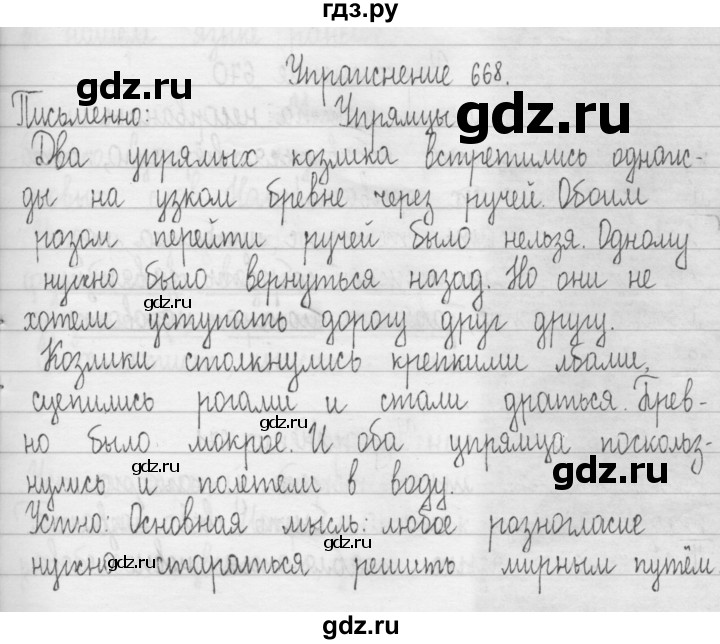 гдз.ру
Упражнение 668.
Письменно: Упрямцы
Два упрямых козлика встретились однаж-
ды на узком бревне через ручей. Обоим
разом перейти ручей было нельзя. Одному
нужно было вернуться назад. Но они не
хотели уступать дорогу друг другу.
Козлики столкнулись крепкими лбами,
сцепились рогами и стали драться. Брев-
но было мокрое. И оба упрямца поскольз-
нулись и полетели в воду.
Устно: Основная мысль: любое разногласие
нужно стараться решить мирным путём
gdz.ru
gdz.ru
gdz.ru
gdz.ru
gdz.ru
gdz.ru
gdz.ru
gdz.ru
gdz.ru
gdz.ru
gdz.ru
gdz.ru
gdz.ru